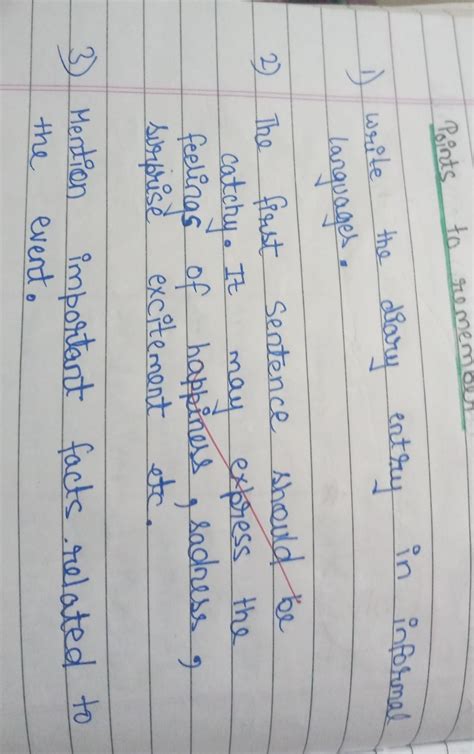 Points to remember
1) Write the diary entry in informal
languages.
2) The first sentence should be
catchy. It may express the
feelings of happiness, sadness,
surprise excitement etc.
3) Mention important facts related to
the event.